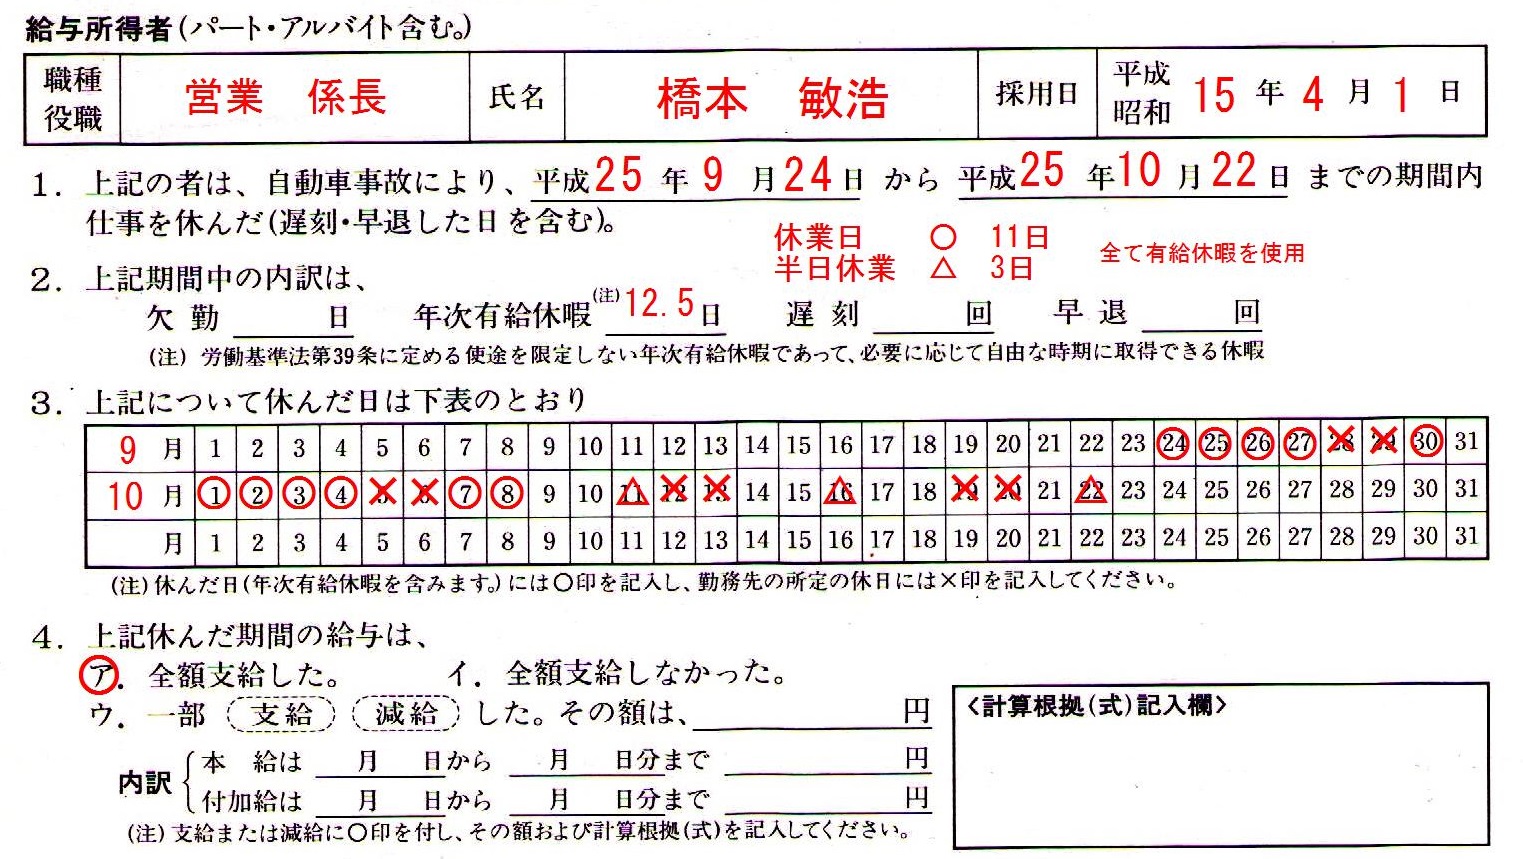 給与所得者(パート・アルバイト含む。)
職種 役職 営業 係長 氏名 橋本 敏浩 採用日 平成 昭和 15 年 4 月 1 日
1. 上記の者は、自動車事故により、平成25年9月24日 から 平成25年10月22日 までの期間内
仕事を休んだ(遅刻・早退した日を含む)。
休業日 ○ 11日
半日休業 △ 3日
全て有給休暇を使用
2. 上記期間中の内訳は、
欠勤 日 年次有給休暇(注)12.5日 遅刻 回 早退 回
(注) 労働基準法第39条に定める使途を限定しない年次有給休暇であって、必要に応じて自由な時期に取得できる休暇
3. 上記について休んだ日は下表のとおり
9月 1 2 3 4 5 6 7 8 9 10 11 12 13 14 15 16 17 18 19 20 21 22 23 24 25 26 27 28 29 30 31
10月 1 2 3 4 5 6 7 8 9 10 11 12 13 14 15 16 17 18 19 20 21 22 23 24 25 26 27 28 29 30 31
月 1 2 3 4 5 6 7 8 9 10 11 12 13 14 15 16 17 18 19 20 21 22 23 24 25 26 27 28 29 30 31
(注)休んだ日(年次有給休暇を含みます。)には○印を記入し、勤務先の所定の休日には×印を記入してください。
4. 上記休んだ期間の給与は、
ア. 全額支給した。 イ. 全額支給しなかった。
ウ. 一部 (支給) (減給) した。その額は、 円
<計算根拠(式)記入欄>
内訳 本 給は 月 日から 月 日分まで 円
付加給は 月 日から 月 日分まで 円
(注)支給または減給に○印を付し、その額および計算根拠(式)を記入してください。